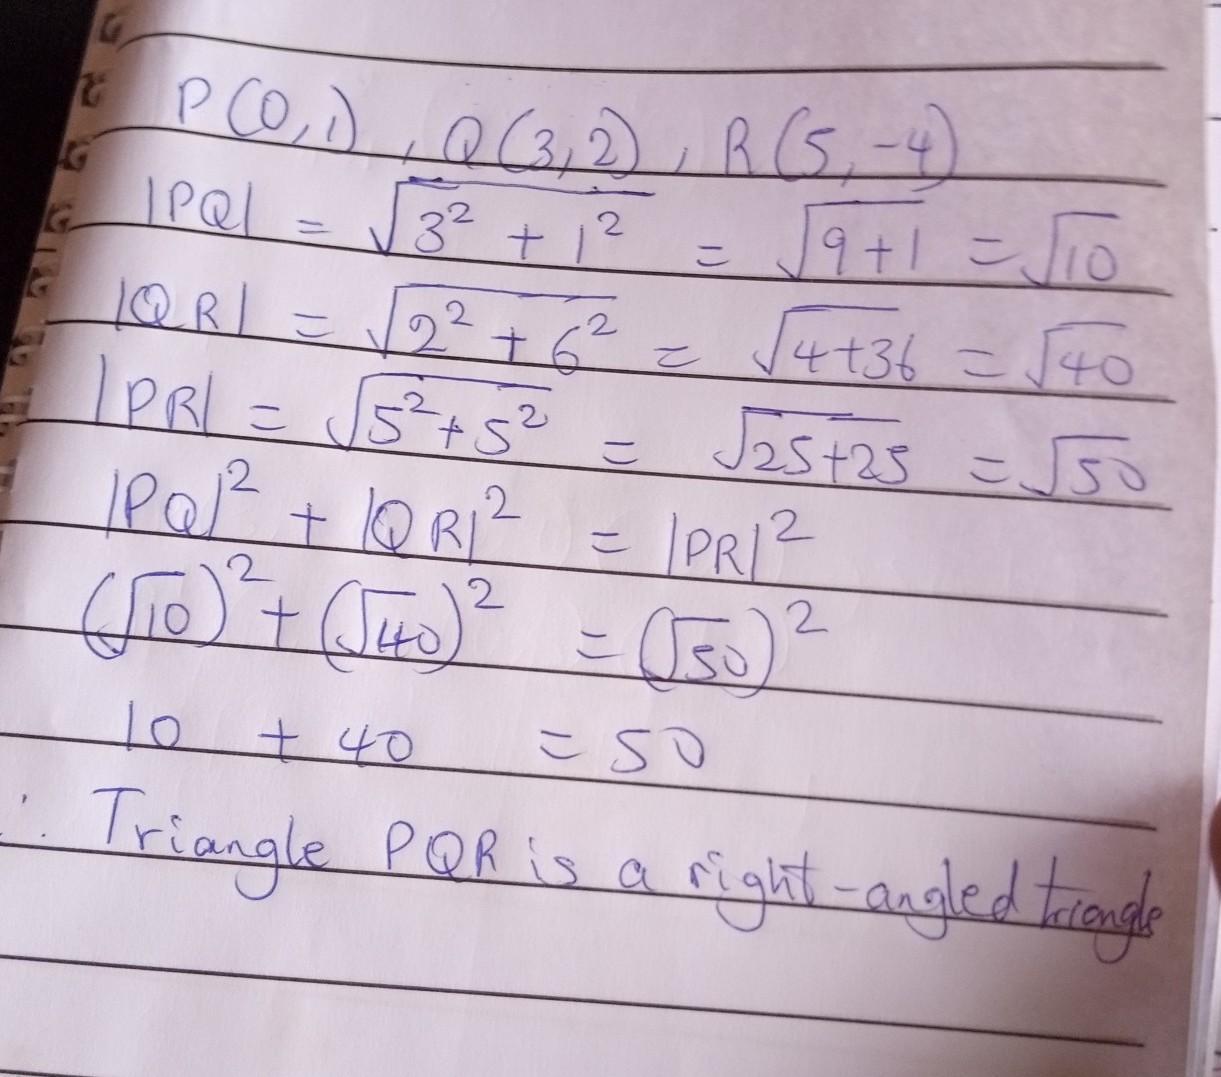 P(0,1), Q(3,2), R(5,-4)
|PQ| = √3² + 1² = √9+1 = √10
|QR| = √2² + 6² = √4+36 = √40
|PR| = √5²+5² = √25+25 = √50
|PQ|² + |QR|² = |PR|²
(√10)² + (√40)² = (√50)²
10 + 40 = 50
∴ Triangle PQR is a right-angled triangle